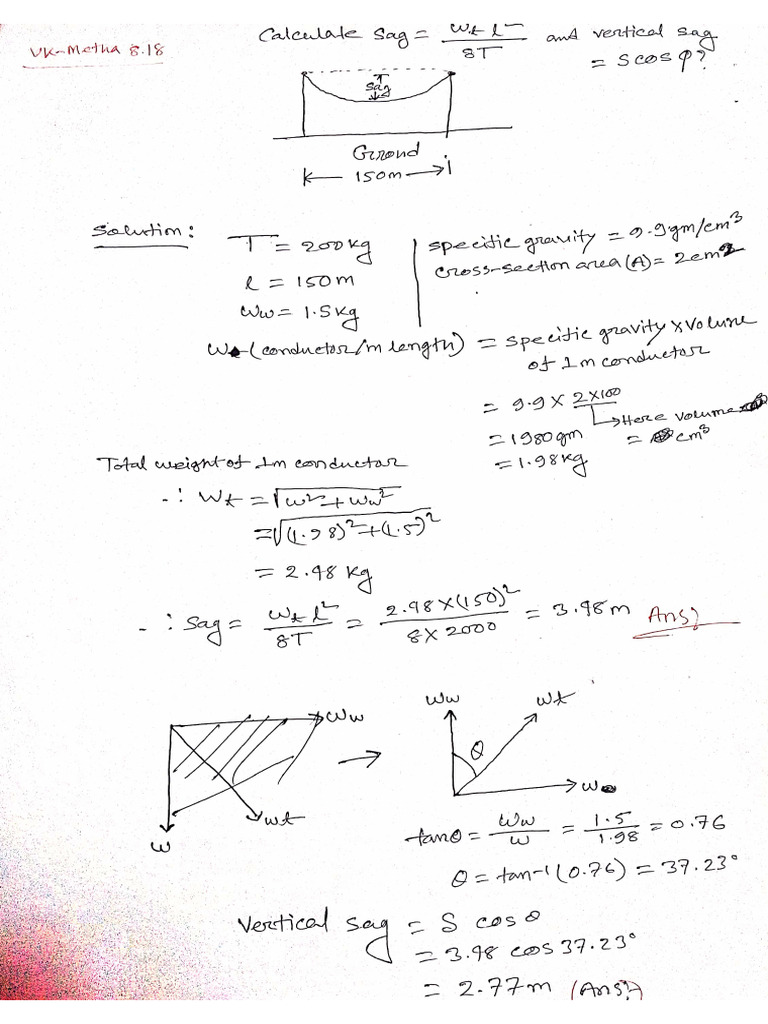 VK-Metha 8.18
Calculate Sag = Wt l² / 8T and vertical sag
= S cos φ?
Sag
Ground
150m
Solution:
T = 200kg
l = 150m
Ww = 1.5kg
specific gravity = 9.9gm/cm³
cross-section area (A) = 2cm²
W (conductor/m length) = specific gravity x volume
of 1m conductor
= 9.9 x 2x100
Here volume
= 1980gm = cm³
= 1.98kg
Total weight of 1m conductor
∴ Wt = √w²+Ww²
= √(1.98)²+(1.5)²
= 2.48 kg
∴ Sag = Wt l² / 8T = 2.48x(150)² / 8x2000 = 3.48m Ans
Ww
Wt
W
Ww
Wt
θ
W
tanθ = Ww / w = 1.5 / 1.98 = 0.76
θ = tan-1(0.76) = 37.23°
Vertical sag = S cos θ
= 3.48 cos 37.23°
= 2.77m (Ans)